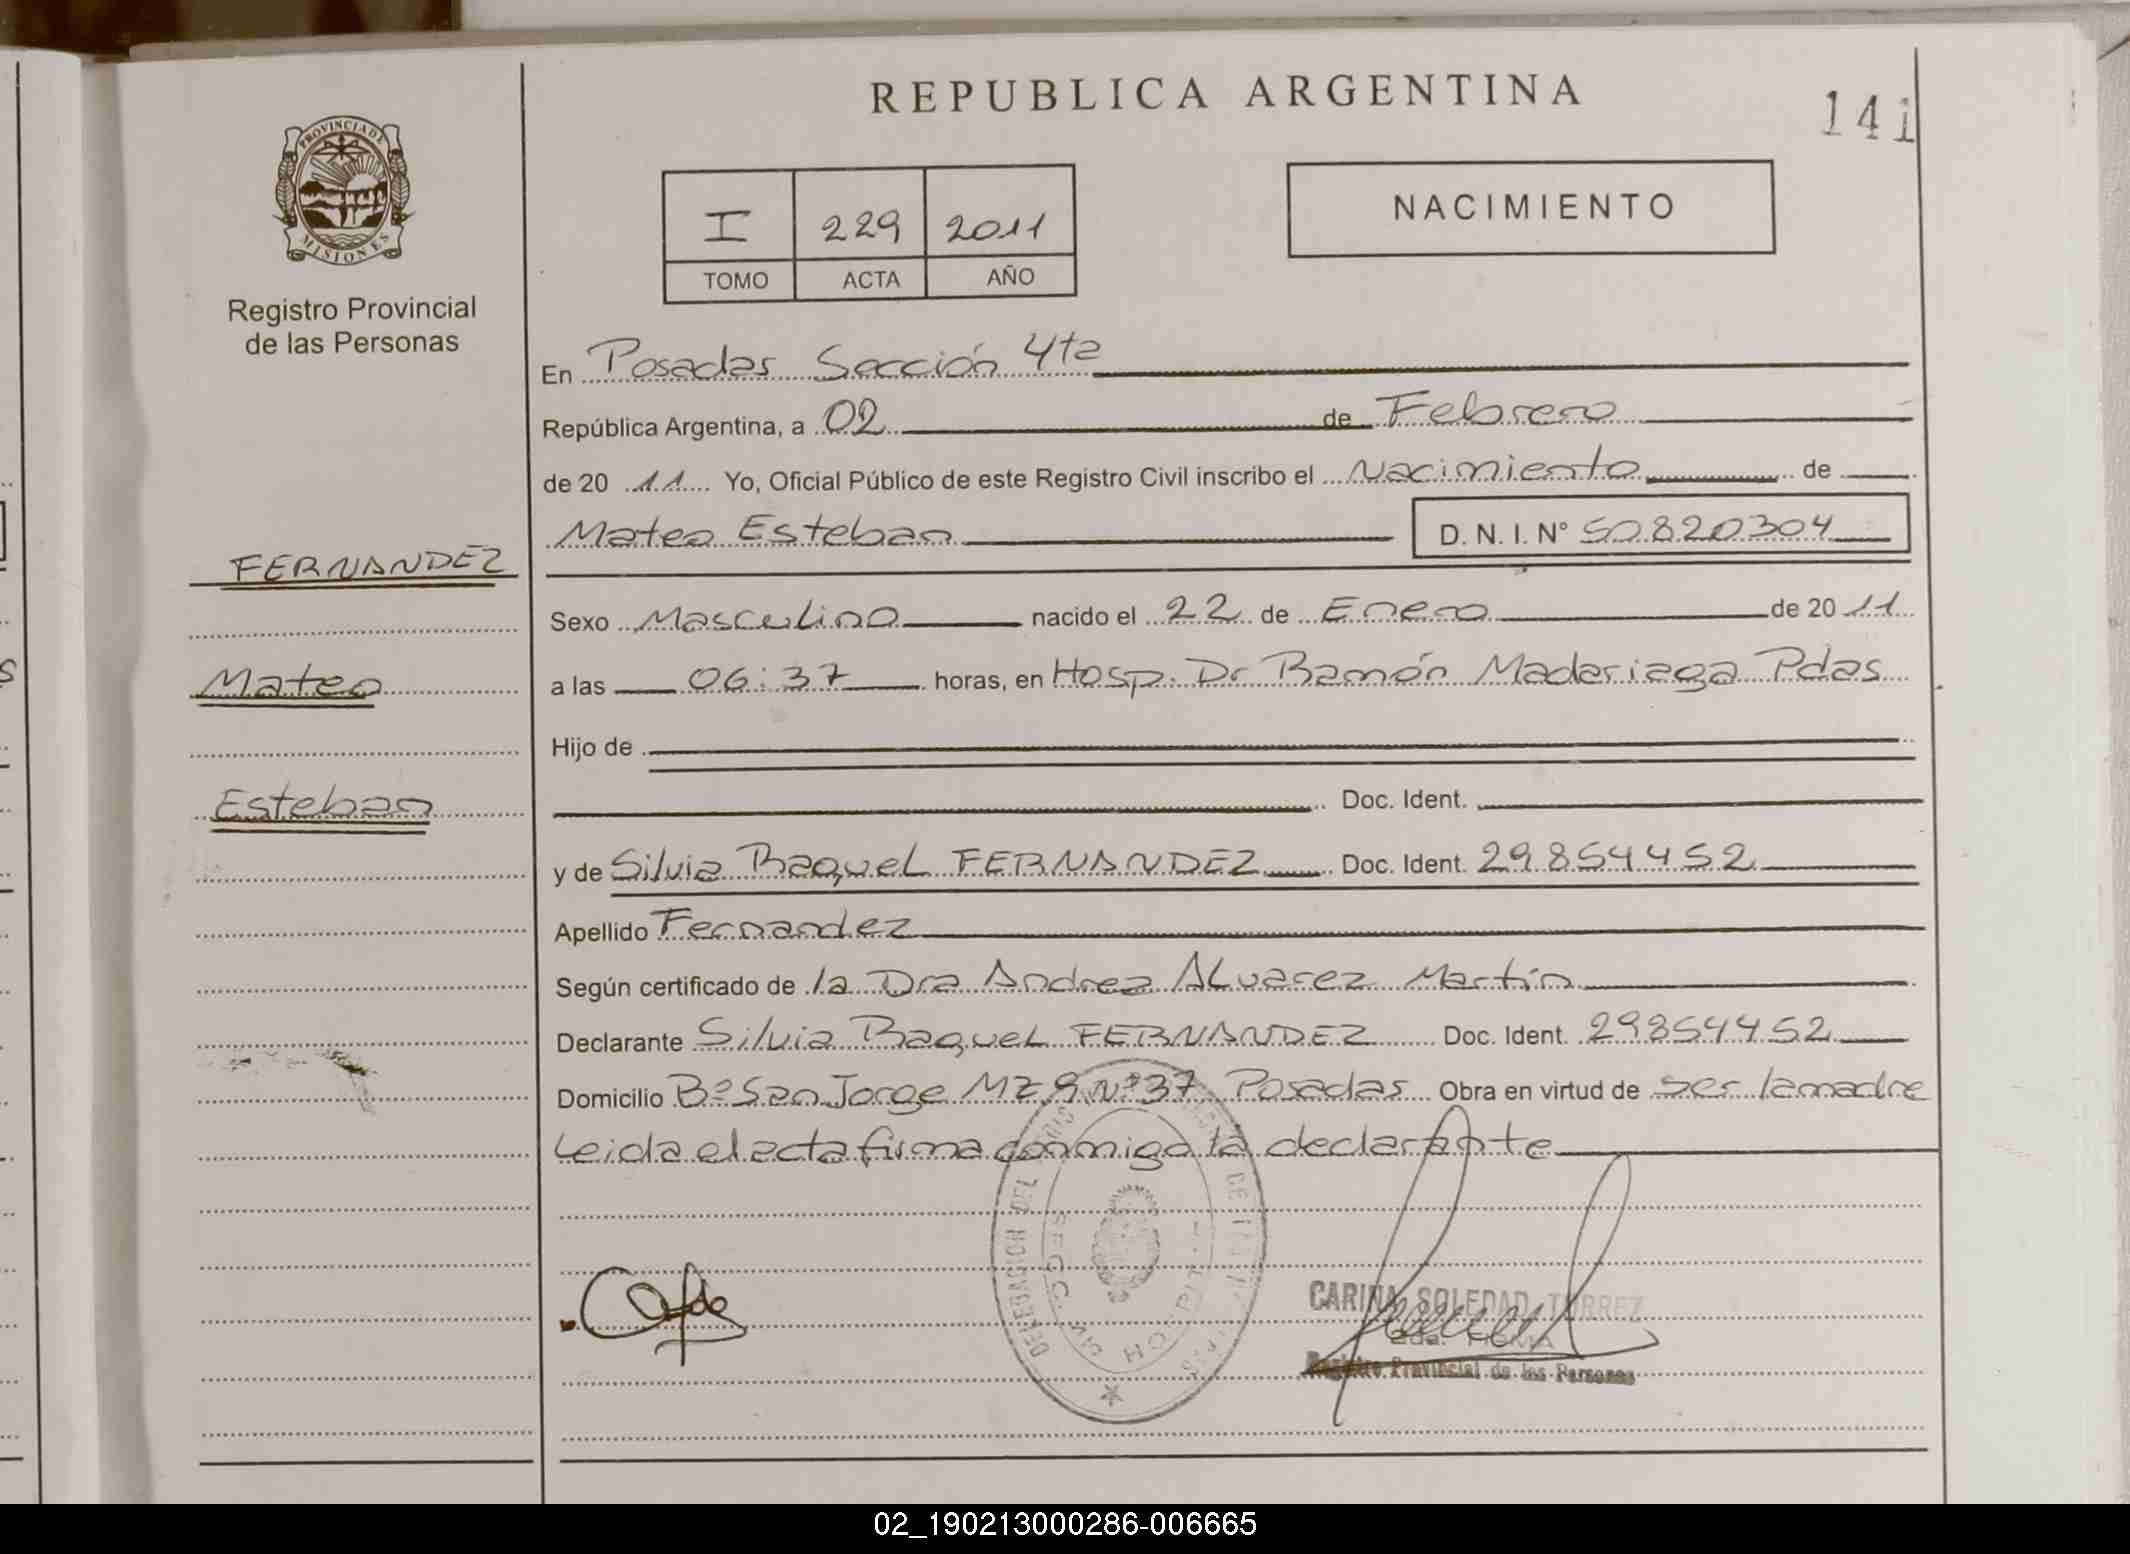 REPUBLICA ARGENTINA
141
PROVINCIA DE
MISIONES
Registro Provincial
de las Personas
I 229 2011
TOMO ACTA AÑO
NACIMIENTO
En Posadas Sección 4ta
República Argentina, a 02 de Febrero
de 20 11 Yo, Oficial Público de este Registro Civil inscribo el Nacimiento de
Mateo Esteban D. N. I. N° 50820304
FERNANDEZ
Sexo Masculino nacido el 22 de Enero de 20 11
Mateo
a las 06:37 horas, en Hosp. Dr Ramón Madariaga Pdas
Hijo de
Esteban
Doc. Ident.
y de Silvia Raquel FERNANDEZ Doc. Ident. 29854452
Apellido Fernandez
Según certificado de la Dra Andrea Alvarez Martín
Declarante Silvia Raquel FERNANDEZ Doc. Ident. 29854452
Domicilio B° San Jorge MZ 9 N° 37 Posadas Obra en virtud de ser la madre
Leida el acta firma conmigo la declarante
DELEGACION DEL
SECC.
CARINA SOLEDAD TORREZ
2da. FIRMA
Registro Provincial de las Personas
02_190213000286-006665